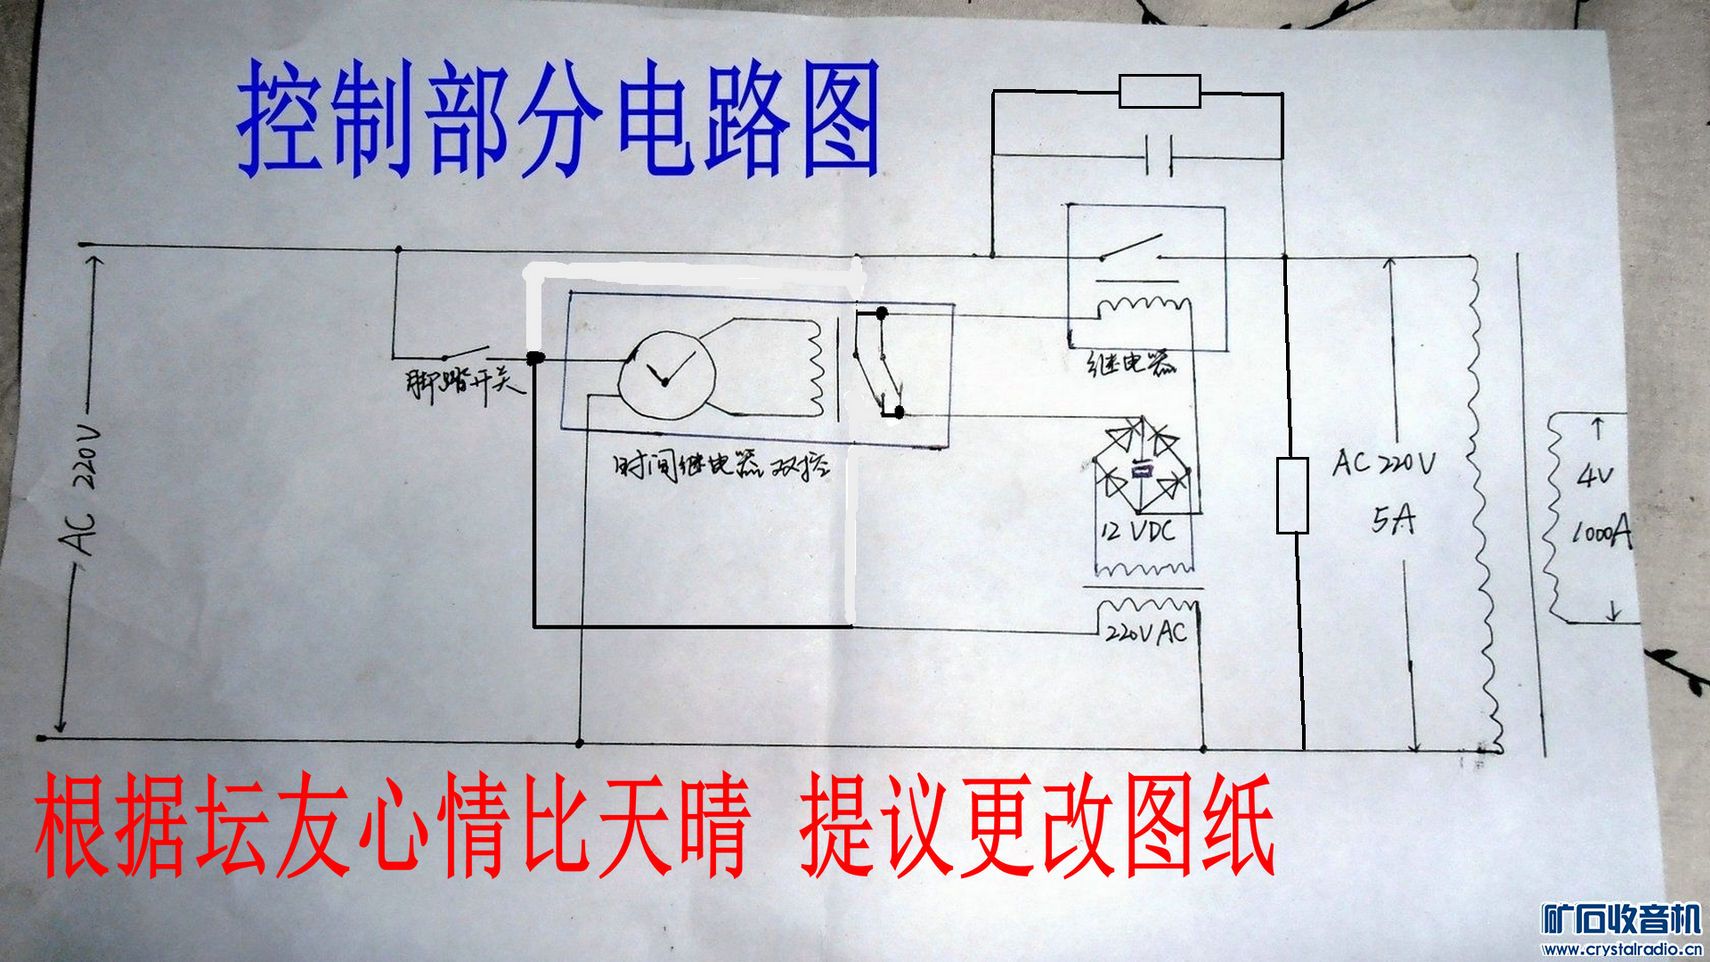 控制部分电路图
AC 220V
脚踏开关
时间继电器双控
继电器
12VDC
220VAC
AC 220V
5A
4V
1000A
根据坛友心情比天晴 提议更改图纸
矿石收音机
www.crystalradio.cn